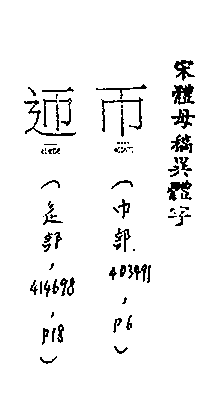 宋體母稿異體字
帀
(巾部, 403491, P6)
迊
(辵部, 414698, P18)